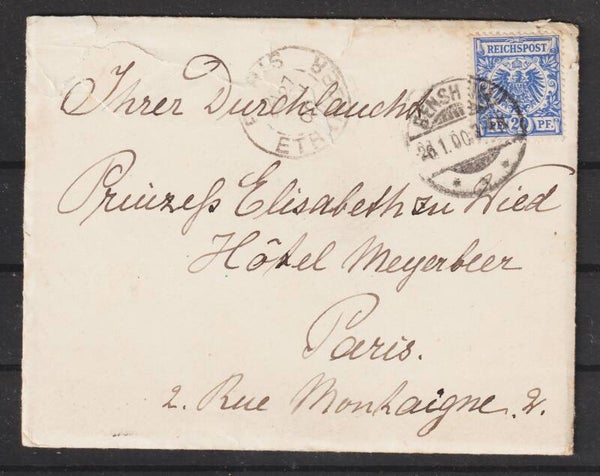 REICHSPOST
PF. 20 PF.
BENSH
26.1.00.
Ihrer Durchlaucht
Prinzeß Elisabeth zu Wied
Hôtel Meyerbeer
Paris.
2. Rue Montaigne 2.